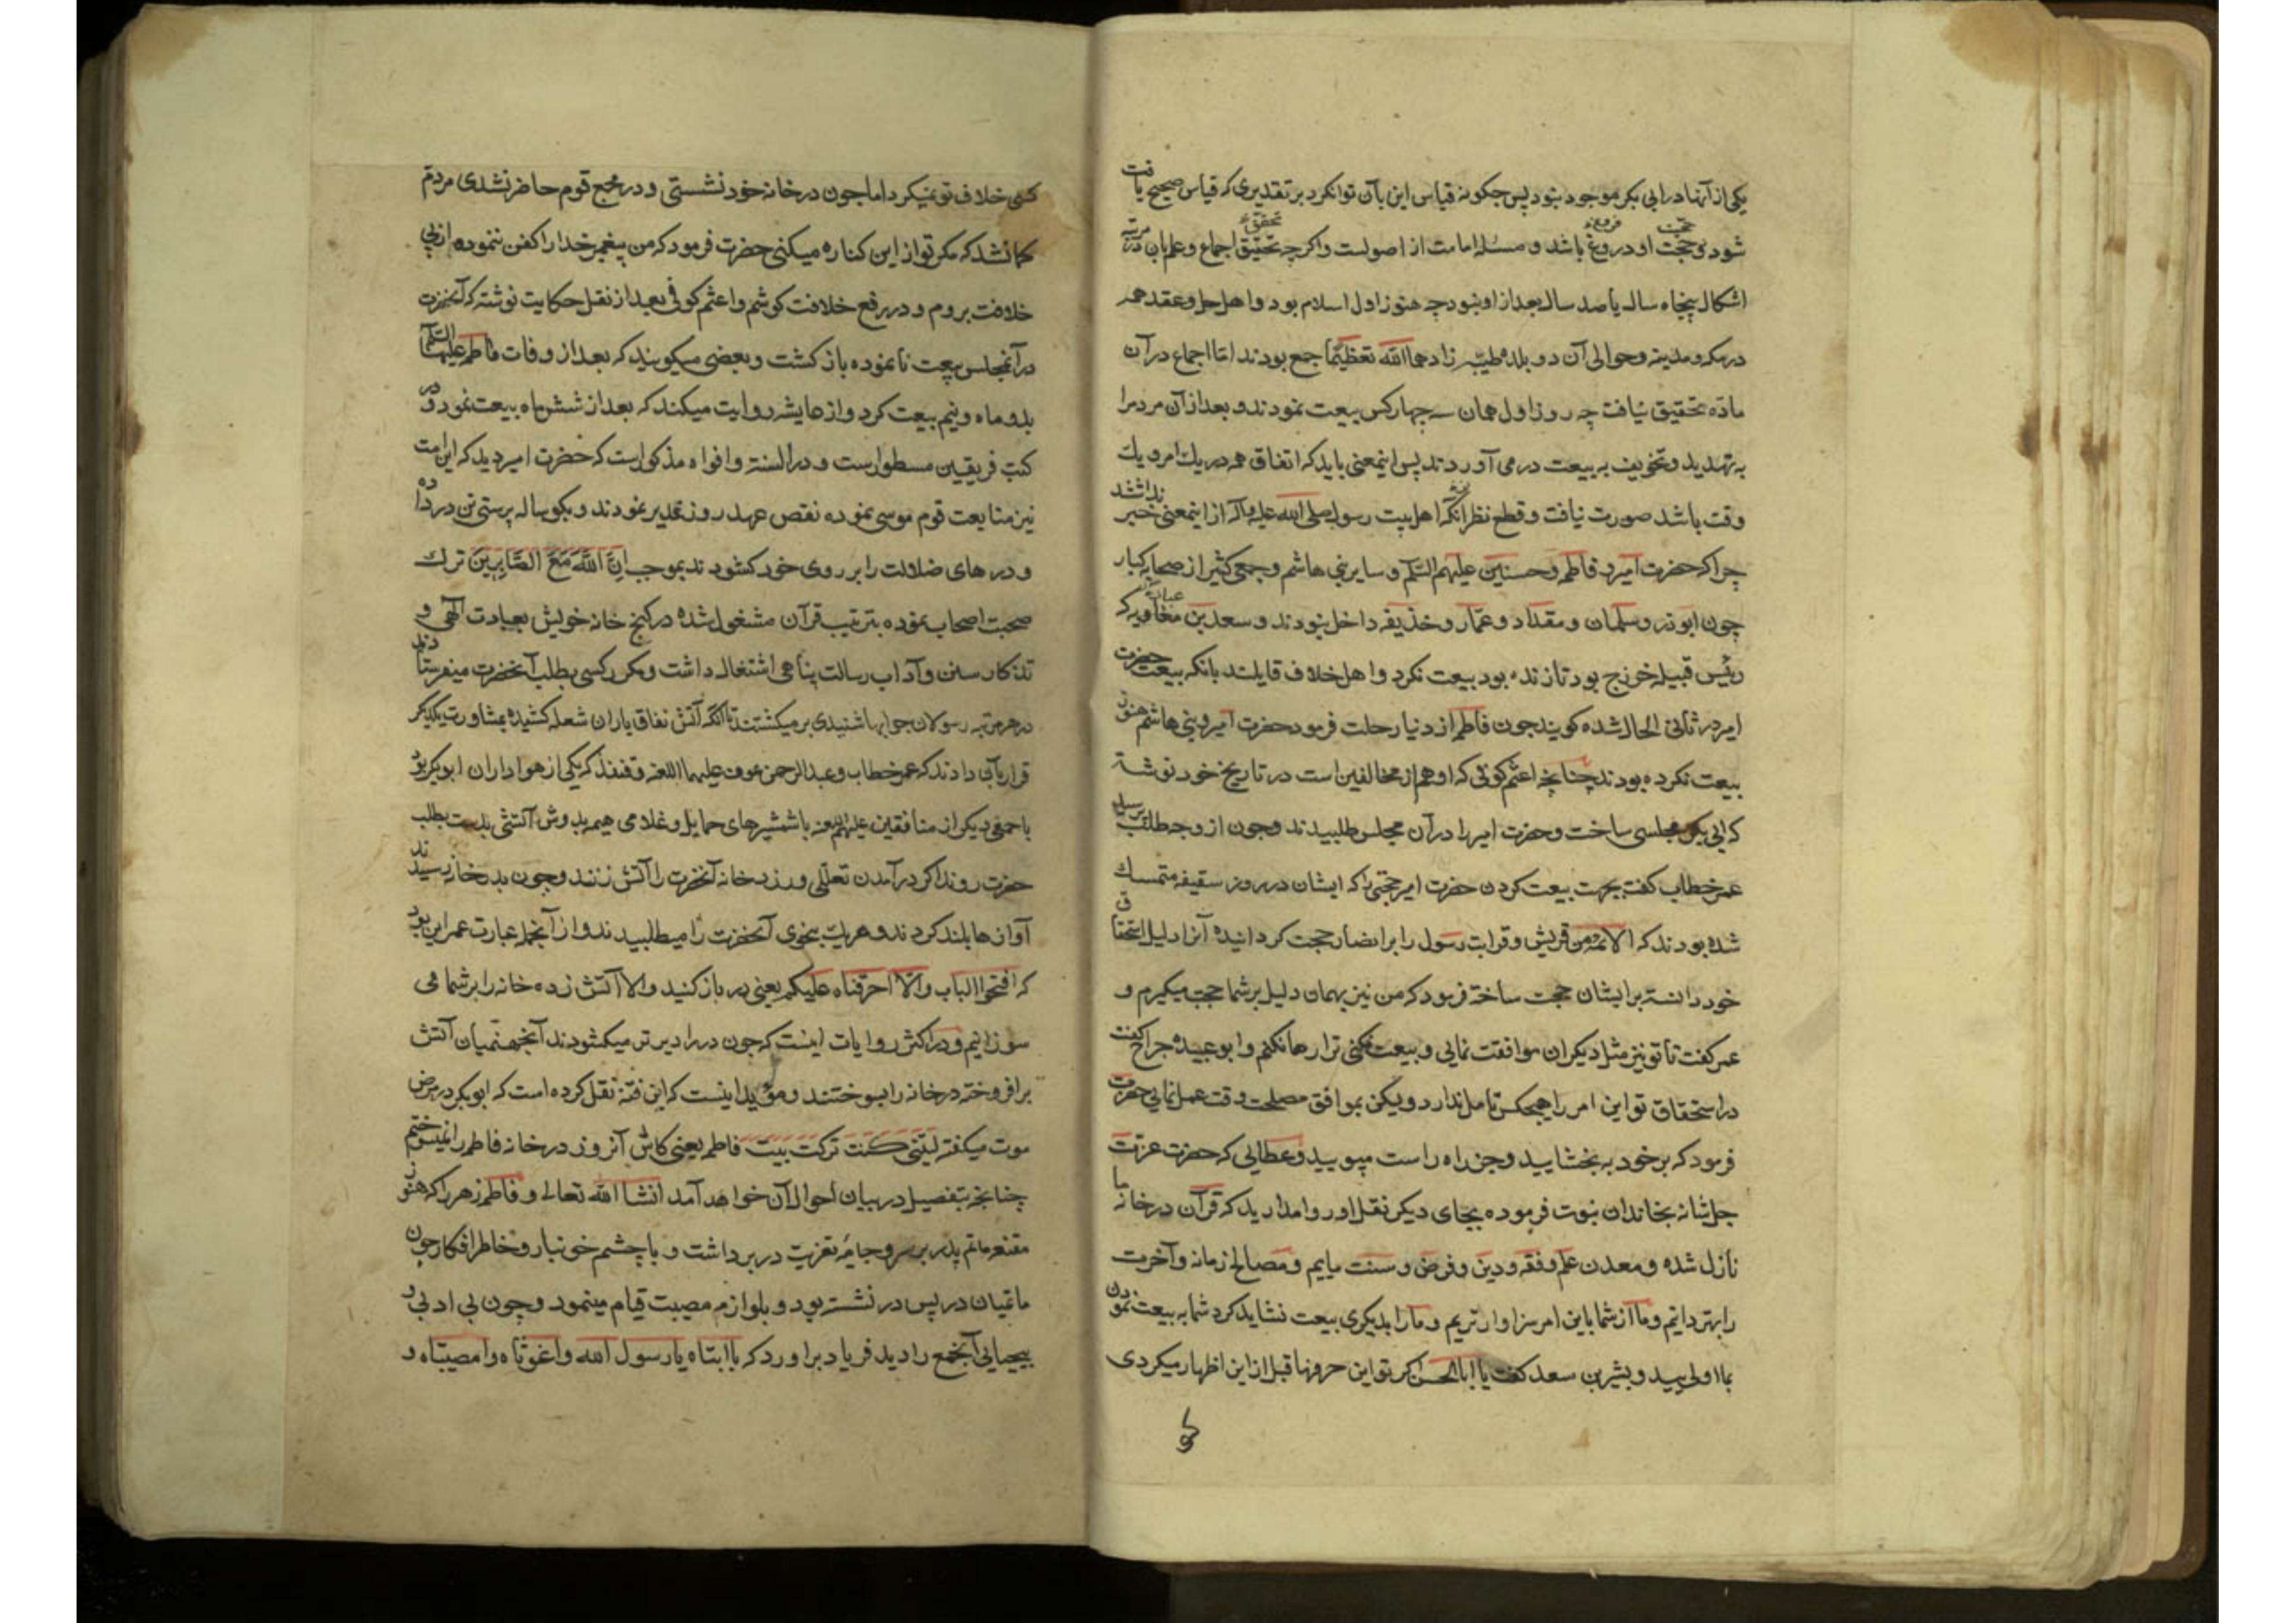 یکی از آنها در ابی بکر موجود نبود پس چکونه قیاس این بآن توانکرد بر تقدیری که قیاس صحیح یافت
شود و حجت او در فروع باشد و مسئله امامت از اصولست و اکر چه تحقیق اجماع و علم بان در مرتبه
اشکال پنجاه سال یا صد سال بعد از او نبود چه هنوز اول اسلام بود و اهل حل و عقد همه
در مکه و مدینه و حوالی آن دو بلده طیبه زادهما الله تعظیما جمع بودند اما اجماع در آن
ماده تحقیق نیافت چه روز اول همان سه چهار کس بیعت نمودند و بعد از آن مردمرا
به تهدید و تخویف به بیعت در می آوردند پس اینمعنی باید که اتفاق همه در یک امر و یک
وقت باشد صورت نیافت و قطع نظر از آنکه اهل بیت رسول صلی الله علیه و آله از اینمعنی خبر نداشتند
چرا که حضرت امیر و فاطمه و حسنین علیهم السلم و سایر بنی هاشم و جمعی کثیر از صحابه کبار
چون ابوذر و سلمان و مقداد و عمار و حذیفه داخل نبودند و سعد بن عباده که
رئیس قبیله خزرج بود تا زنده بود بیعت نکرد و اهل خلاف قایلند بانکه بیعت حضرت
امیر در ثانی الحال شده کویند چون فاطمه از دنیا رحلت فرمود حضرت امیر و بنی هاشم هنوز
بیعت نکرده بودند چنانچه اعثم کوفی که او هم از مخالفین است در تاریخ خود نوشته
که ابی بکر مجلسی ساخت و حضرت امیر را در آن مجلس طلبیدند و چون از وجه طلب پرسید
عمر خطاب کفت بجهت بیعت کردن حضرت امیر حجتی را که ایشان در روز سقیفه متمسک
شده بودند که الائمة من قریش و قرابت رسول را بر انصار حجت کردانیده آنرا دلیل استحقاق
خود دانسته بر ایشان حجت ساخته فرمود که من نیز بهمان دلیل بر شما حجت میکیرم و
عمر کفت تا تو نیز مثل دیکران موافقت نمایی و بیعت نکنی ترا رها نکنم و ابو عبیده جراح کفت
در استحقاق تو این امر را هیچکس تامل ندارد ویکن بموافق مصلحت وقت عمل نمایی حضرت
فرمود که بر خود به بخشایید و جز راه راست مپویید و عطایی که حضرت عزت
جل شانه بخاندان نبوت فرموده بجای دیکر نقل اوروا مدارید که قرآن در خانه ما
نازل شده و معدن علم و فقه و دین و فرض و سنت ماییم و مصالح زمانه و آخرت
را بهتر دانیم و ما از شما باین امر سزاوارتریم و ما را بدیکری بیعت نشاید کرد شما به بیعت نمودن
بما اولی یید و بشیر بن سعد کفت یا ابا الحسن اکر تو این حرفها قبل از این اظهار میکردی
کسی خلاف تو نمیکرد اما چون در خانه خود نشستی و در مجمع قوم حاضر نشدی مردم
کمانشد که مکر تو از این کناره میکنی حضرت فرمود که من پیغمبر خدا را کفن ننموده از پی
خلافت بروم و در رفع خلافت کوشم و اعثم کوفی بعد از نقل حکایت نوشته که آنحضرت
در آنمجلس بیعت نانموده باز کشت و بعضی میکویند که بعد از وفات فاطمه علیها السلام
بدو ماه و نیم بیعت کرد و از عایشه روایت میکند که بعد از شش ماه بیعت نمود و در
کتب فریقین مسطور است و در السنه و افواه مذکور است که حضرت امیر دید که این امت
نیز متابعت قوم موسی نموده نقص عهد روز غدیر نمودند و بکوساله پرستی تن در داده
و درهای ضلالت را بر روی خود کشودند بموجب ان الله مع الصابرین ترک
صحبت اصحاب نموده بترتیب قرآن مشغول شده در کنج خانه خویش بعبادت الهی و
تذکار سنن و آداب رسالت پناهی اشتغال داشت و مکرر کسی بطلب آنحضرت میفرستادند
در هر مرتبه رسولان جوابها شنیدی بر میکشتند تا آنکه آتش نفاق یاران شعله کشیده بمشاورت یکدیکر
قرار بآن دادند که عمر خطاب و عبد الرحمن عوف علیهما اللعنه و قنفذ که یکی از هواداران ابو بکر بود
با جمعی دیکر از منافقین علیهم اللعنه با شمشیرهای حمایل و غلامی هیمه بدوش آتشی بدست بطلب
حضرت روند اکر در آمدن تعللی ورزد خانه آنحضرت را آتش زنند و چون بدر خانه رسیدند
آوازها بلند کردند و هر یک بنحوی آنحضرت را میطلبیدند و از آنجمله عبارت عمر این بود
که افتحوا الباب والا احرقناه علیکم یعنی در باز کنید و الا آتش زده خانه را بر شما می
سوزانیم و در اکثر روایات اینست که چون در را دیر تر میکشودند آنجهنمیان آتش
بر افروخته در خانه را بسوختند و مؤید اینست که ابن قته نقل کرده است که ابو بکر در مرض
موت میکفته لیتنی کنت ترکت بیت فاطمه یعنی کاش آنروز در خانه فاطمه را نمیسوختم
چنانچه بتفصیل در بیان احوال آن خواهد آمد انشا الله تعالی و فاطمه زهرا که هنوز
مقنعه ماتم پدر بر سر و جامه تعزیت در بر داشت و با چشم خونبار و خاطر افکار چون
ماتمیان در پس در نشسته بود و بلوازم مصیبت قیام مینمود و چون بی ادبی و
بیحیائی آنجمع را دید فریاد بر اورد که یا ابتاه یا رسول الله واغوثاه وامصیبتاه و